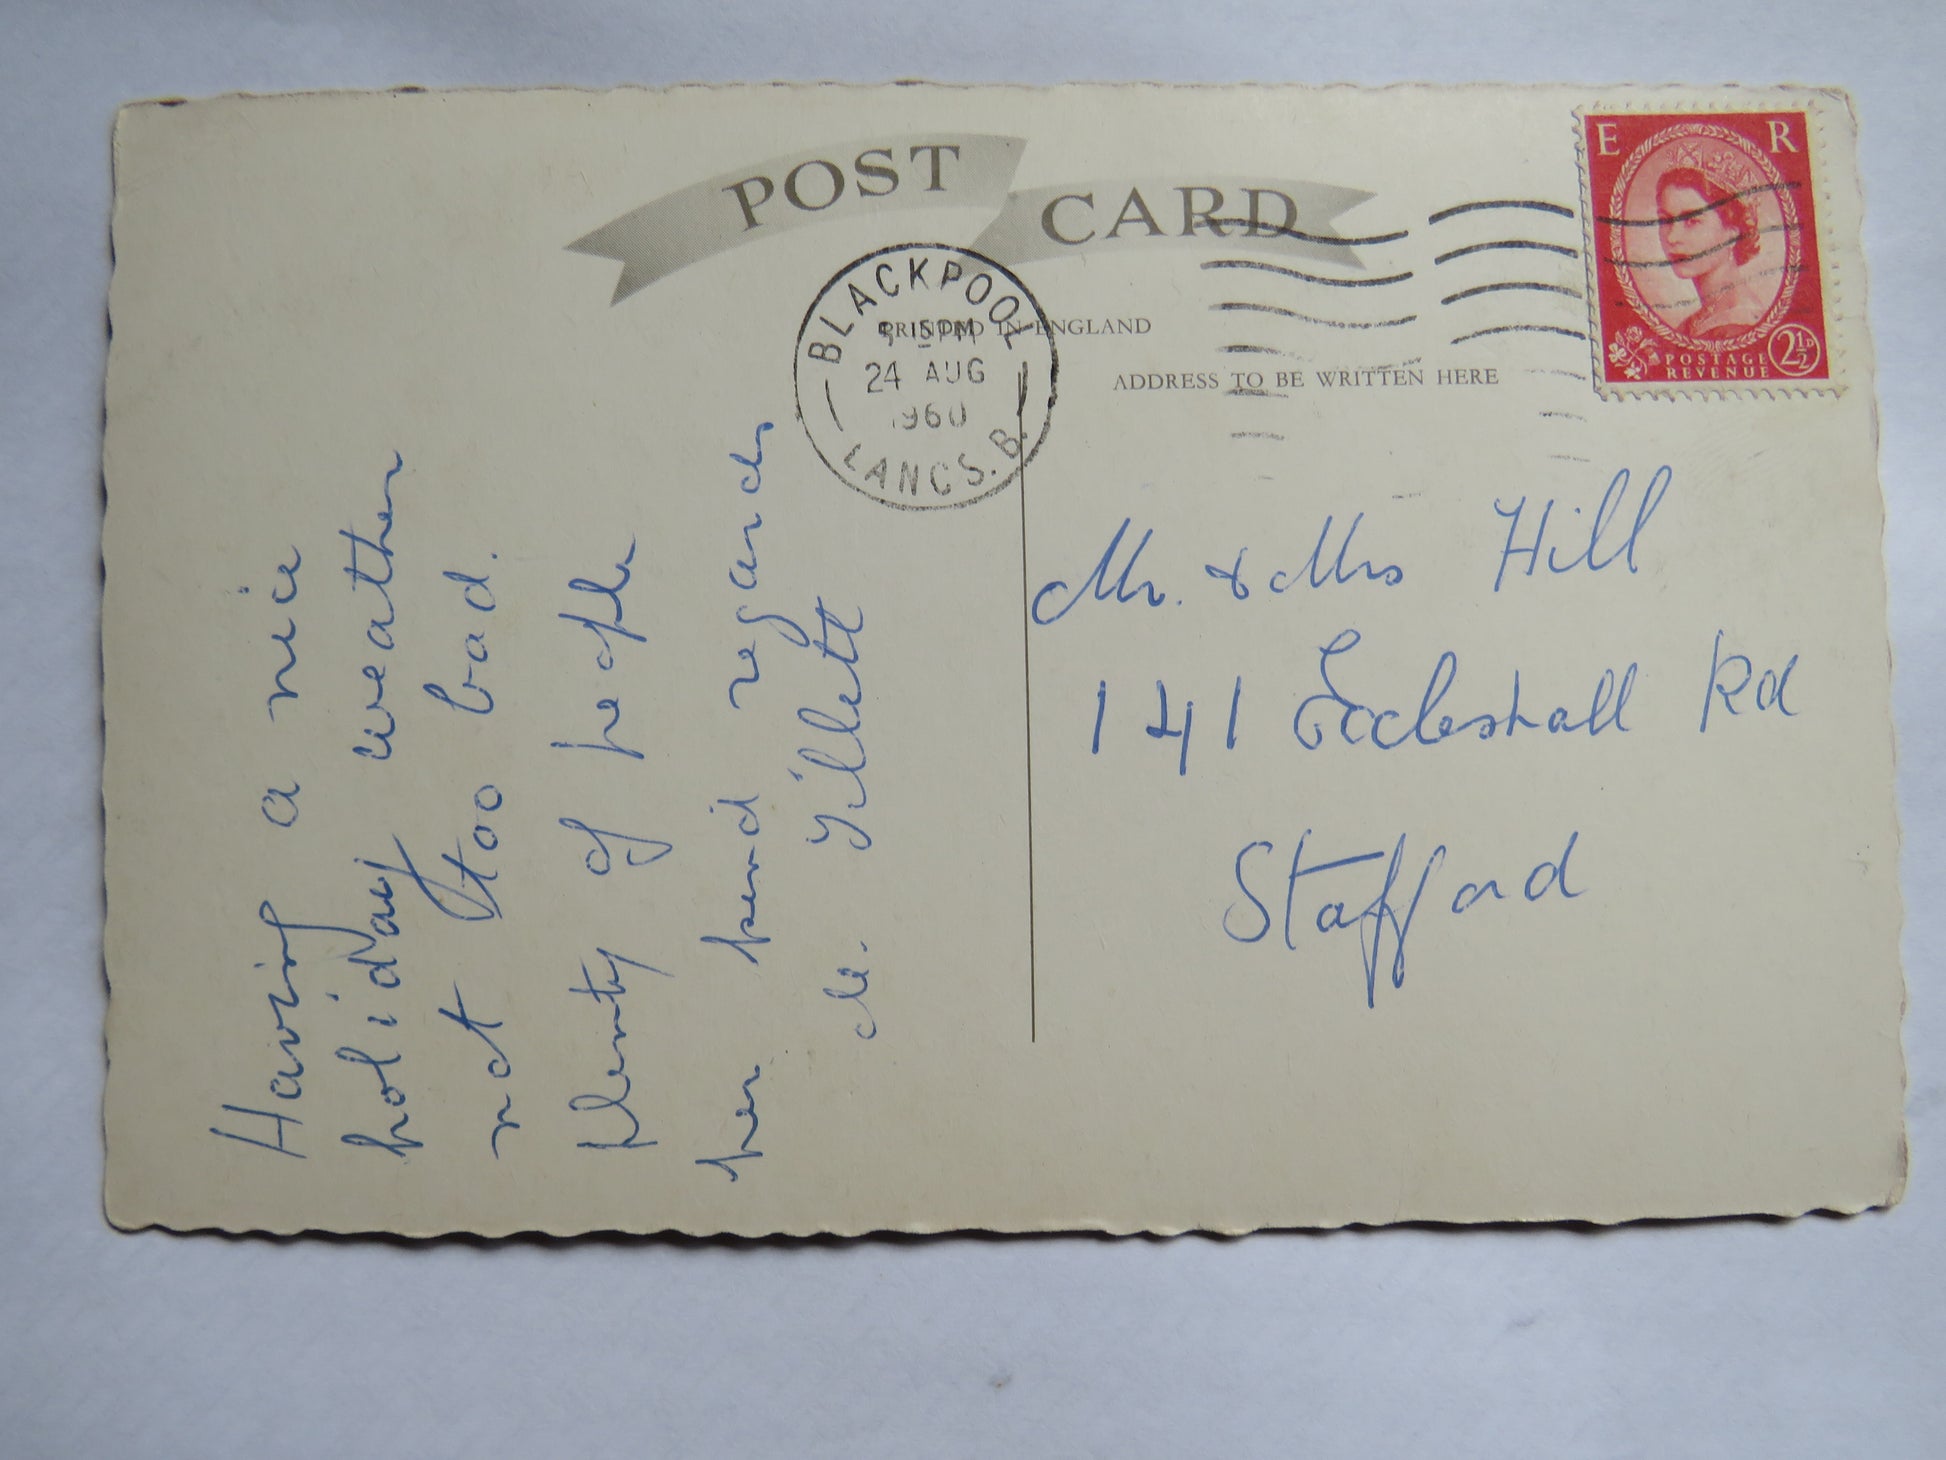 POST CARD
PRINTED IN ENGLAND
ADDRESS TO BE WRITTEN HERE
BLACKPOOL
15 PM
24 AUG
1960
LANCS. B.
E R
POSTAGE
REVENUE
2½D
Having a nice
holiday weather
not too bad.
plenty of people
her kend regards
M. Tillett
Mr. & Mrs Hill
141 Eccleshall Rd
Stafford